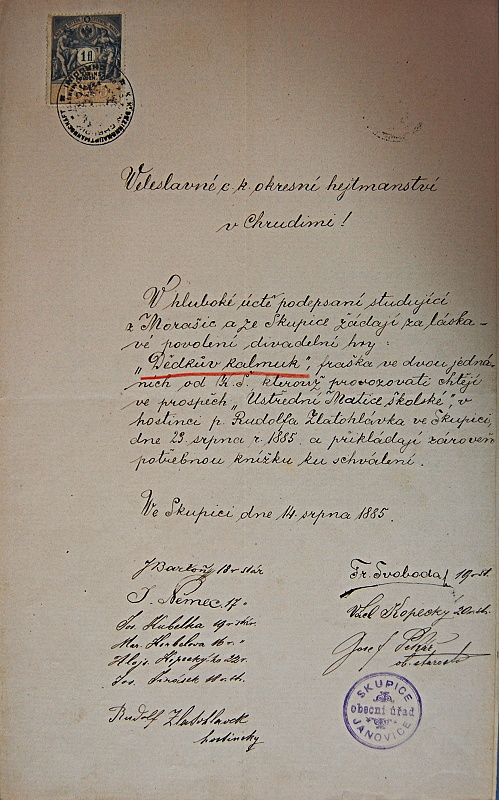 1 fl
Veleslavné c. k. okresní hejtmanství
v Chrudimi!
V hluboké úctě podepsaní studující
z Morašic a ze Skupice žádají za láska-
vé povolení divadelní hry:
"Dědkův kalmuk", fraška ve dvou jedná-
ních od Fr. Š. kterouž provozovati chtějí
ve prospěch „Ústřední Matice školské", v
hostinci p. Rudolfa Zlatohlávka ve Skupici,
dne 23. srpna r. 1885. a přikládají zároveň
potřebnou knížku ku schválení.
Ve Skupici dne 14. srpna 1885.
J Bartoň 18 r stár
Fr. Svoboda 19 r st.
J. Němec. 17 "
Václ Kopecký 20 r. st.
Jos. Kubelka 19 r. stár.
Josef
Mar. Herbelova 16 r. "
ob. starosta
Alojs. Kopecký 22 r.
Jos. 18 r. st.
Rudolf Zlatohlavek
hostinsky
SKUPICE
obecní úřad
JANOVICE